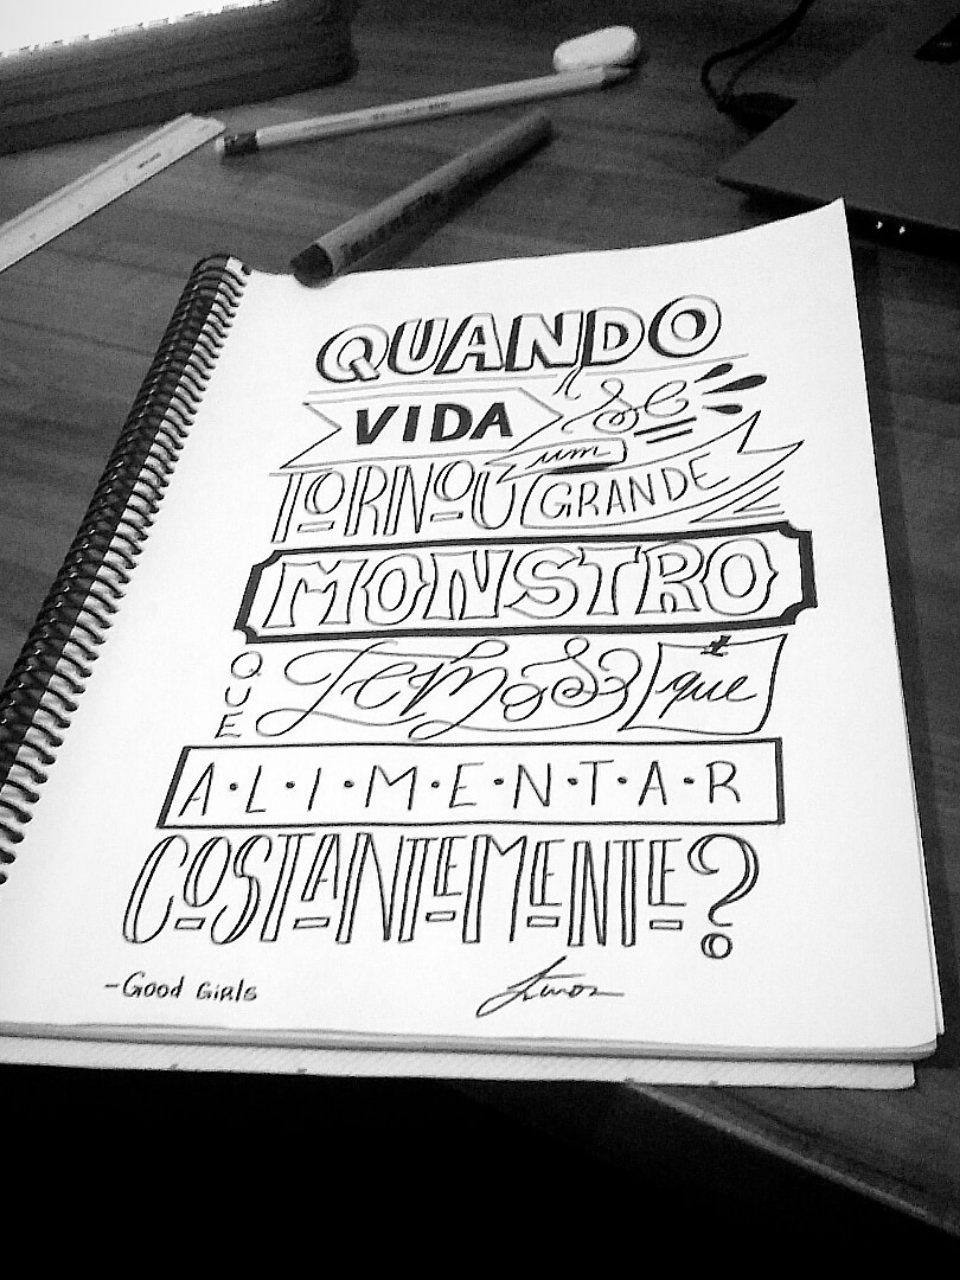 QUANDO
VIDA se
TORNOU um GRANDE
MONSTRO
QUE Temos que
A·L·I·M·E·N·T·A·R
COSTANTEMENTE?
-GOOD GIRLS